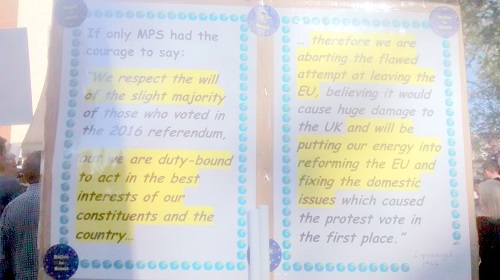 If only MPS had the
courage to say:
"We respect the will
of the slight majority
of those who voted in
the 2016 referendum,
but we are duty-bound
to act in the best
interests of our
constituents and the
country...
... therefore we are
aborting the flawed
attempt at leaving the
EU, believing it would
cause huge damage to
the UK and will be
putting our energy into
reforming the EU and
fixing the domestic
issues which caused
the protest vote in
the first place."